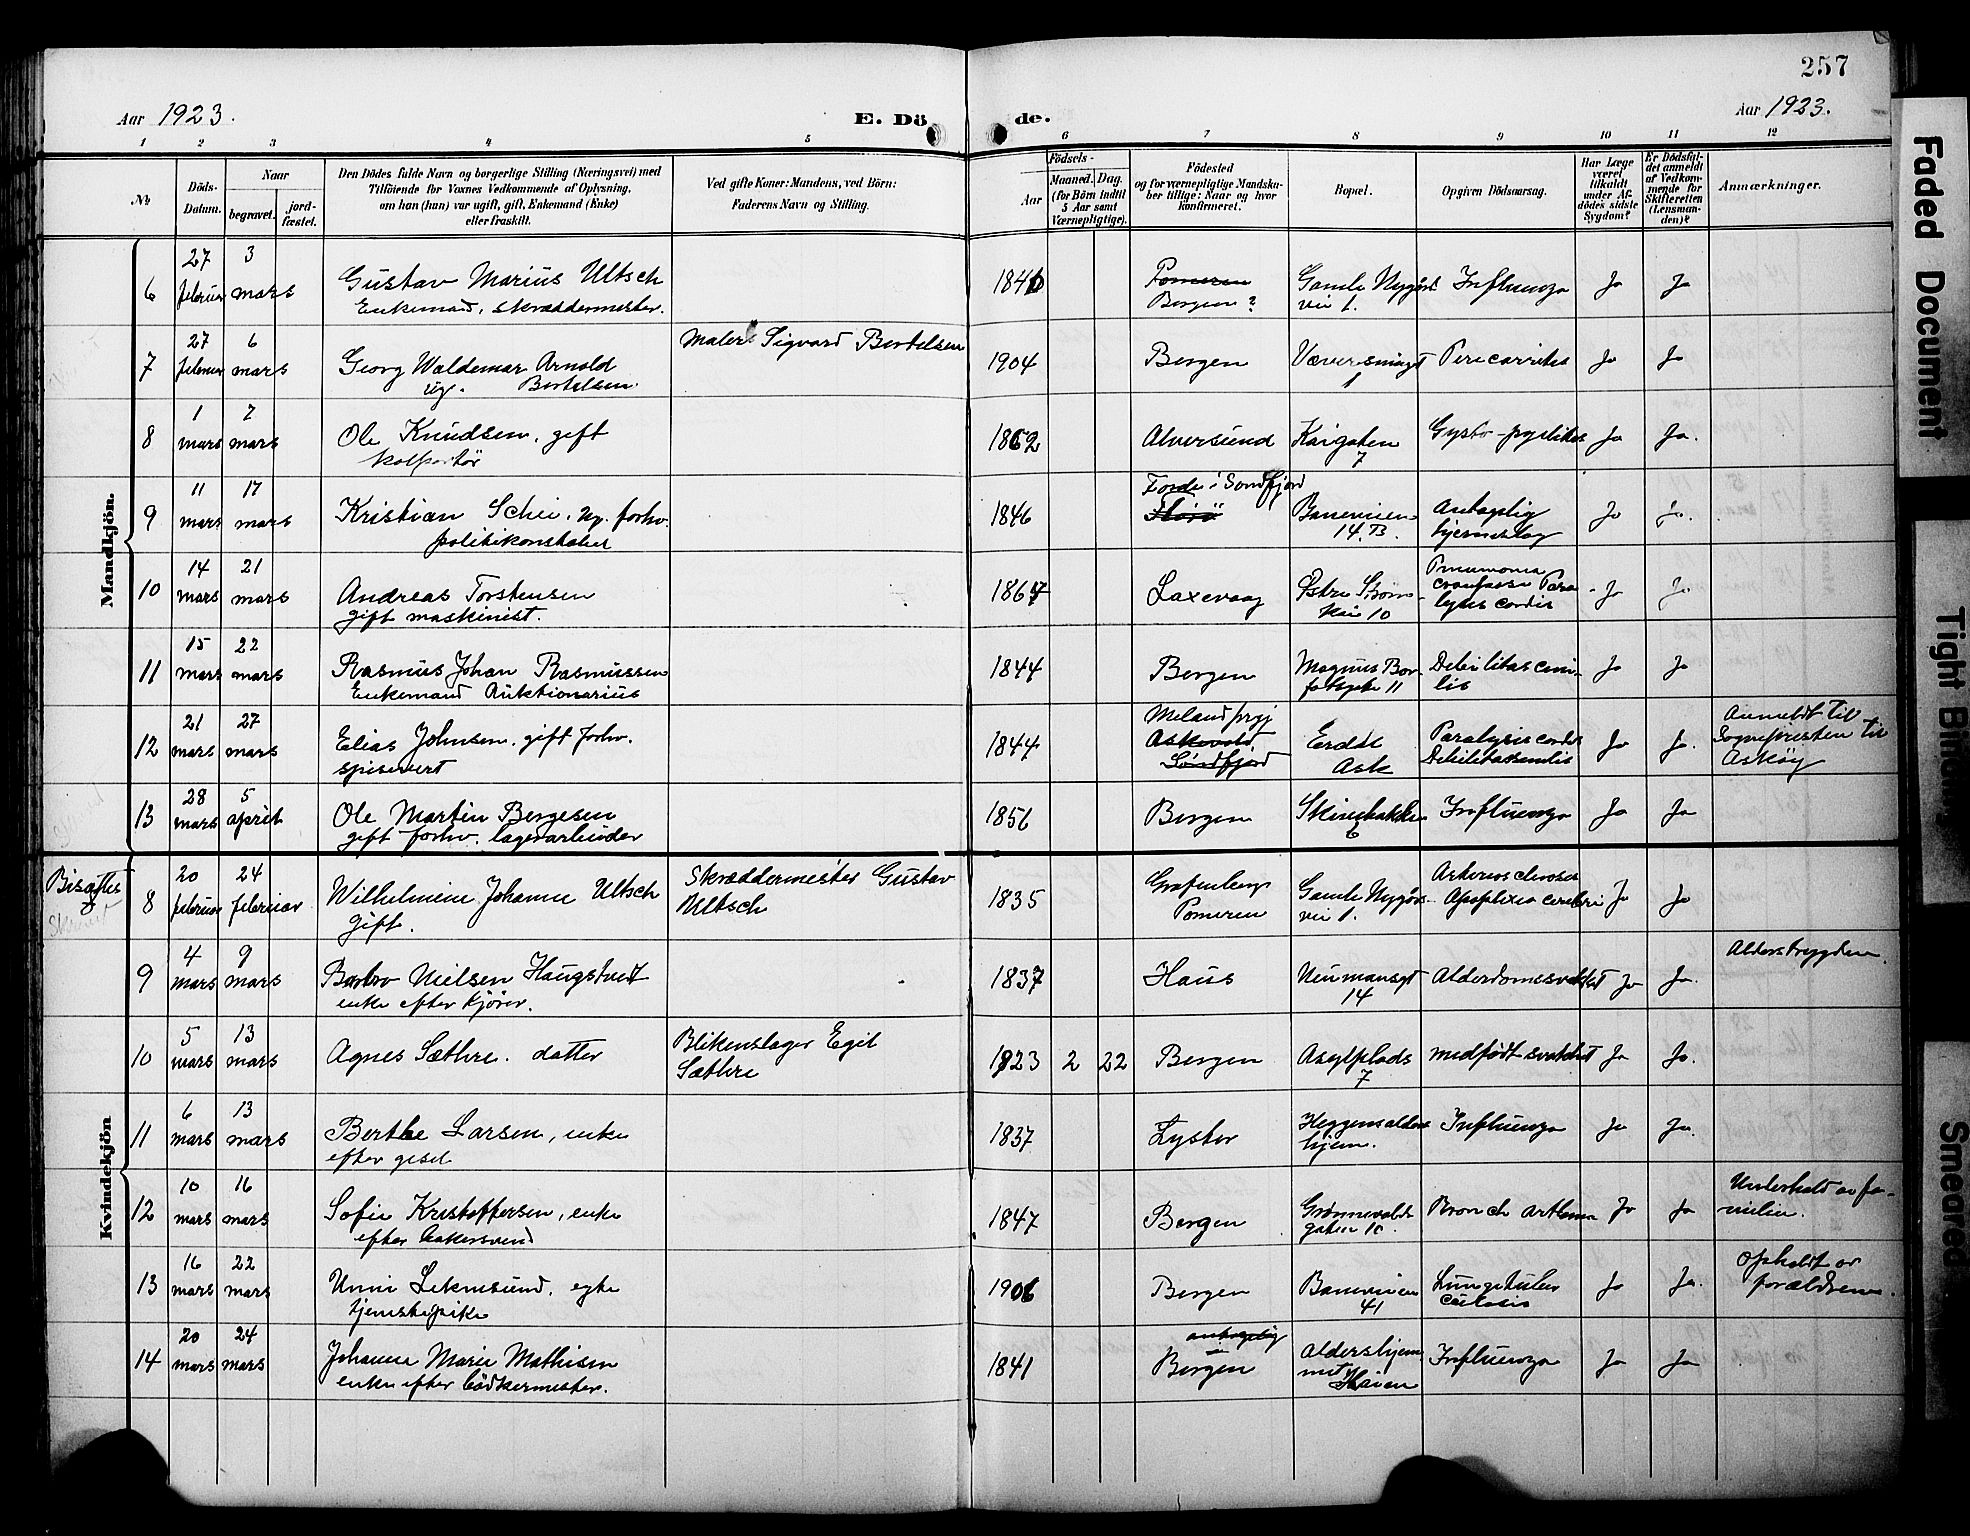 257
Aar 1923.
E. Dö
de.
Aar 1923.
1 2 3 4 5 6 7 8 9 10 11 12
№
Döds-
Datum.
Naar
begravet.
jord-
fæstet.
Den Dödes fulde Navn og borgerlige Stilling (Næringsvei) med
Tilföiende for Voxnes Vedkommende af Oplysning,
om han (hun) var ugift, gift, Enkemand (Enke)
eller fraskilt.
Ved gifte Koner: Mandens, ved Börn:
Faderens Navn og Stilling.
Födsels-
Aar
Maaned.
Dag.
(for Börn indtil
5 Aar samt
Værnepligtige).
Födested
og for værnepligtige Mandska-
ber tillige: Naar og hvor
konfirmeret.
Bopæl.
Opgiven Dödsaarsag.
Har Læge
været
tilkaldt
under Af-
dödes sidste
Sygdom?
Er Dödsfal-
det anmeldt
af Vedkom-
mende for
Skifteretten
(Lensman-
den)?
Anmærkninger.
Mandkjön.
6 27 februar 3 mars
Gustav Marius Ultsch
Enkemand, skræddermester.
Pomeren
Bergen?
Gamle Nygårds
vei 1.
Influenza
Ja Ja
7 27 februar 6 mars
Georg Waldemar Arnold
ug. Bertelsen.
Maler Sigvard Bertelsen
1904
Bergen
1
Pericarditis
Ja Ja
8 1 mars 7 mars
Ole Knudsen, gift
kolportör
1862
Alversund
Kaigaten
7
Ja Ja.
9 11 mars 17 mars
Kristian Schei, ug. forhv.
politikonstabel
1846
Förde i Söndfjord
Florö
Baneveien
14.B.
Antagelig
hjerneslag
Ja Ja.
10 14 mars 21 mars
Andreas Torstensen
gift maskinist.
1867
Laxevaag
Østre Strøm-
kai 10
Pneumonia
crouposa Para
lysis cordis
Ja Ja
11 15 mars 22 mars
Rasmus Johan Rasmussen
Enkemand Auktionarius
1844
Bergen
Magnus Bar-
fotsgate 11
Debilitas ceni-
lis
Ja Ja
12 21 mars 27 mars
Elias Johnsen, gift forhv.
spisevert
1844
Meland prgj
Askevold
Söndfjord
Erdal
Ask
Paralysis cordis
Debilitas senilis
Ja Ja.
Anmeldt til
Sognepresten til
Askøy
13 28 mars 5 april
Ole Martin Bergesen
gift forhv. lagerarbeider
1856
Bergen
6
Influenza
Ja Ja
Bisættes
Kvindekjön
8 20 februar 24 februar
Wilhelmine Johanne Ultsch
gift.
Skræddermester Gustav
Ultsch
1835
Grafenberg
Pomeren
Gamle Nygårds-
vei 1.
Apoplexia cerebri
Ja Ja
9 4 mars 9 mars
Barbro Nielsen Haugstvedt
enke efter kjører.
1837
Haus
Neumansgt
14
Alderdomssvakhet
Ja Ja.
Alderstrygden.
10 5 mars 13 mars
Agnes Sæthre. datter
Blikenslager Egil
Sæthre
1923 2 22
Bergen
Asylplads
7
medfödt svakhet
Ja Ja.
11 6 mars 13 mars
Berthe Larsen, enke
efter gesel
1837
Lyster
Heggens alders
hjem.
Influenza
Ja Ja.
12 10 mars 16 mars
Sofie Kristoffersen, enke
efter bakersvend
1847
Bergen
Grønnevolds
gaten 10.
Bronch asthma
Ja Ja
Underholdt av fa-
milien.
13 16 mars 22 mars
Unni Leknesund, egte
tjenestepike
1906
Bergen
Baneveien
41
Lungetuber
culosis
Ja Ja.
Opholdt av
forældrene.
14 20 mars 24 mars
Johanne Marie Mathisen
enke efter bödkermester.
1841
antagelig
Bergen
Aldershjem
met
Haven
Influenza
Ja Ja
Faded Document
Tight Binding
Smeared